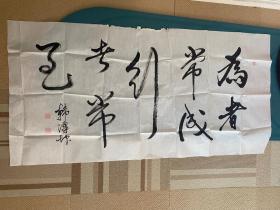 為者
常成
行
者常
至